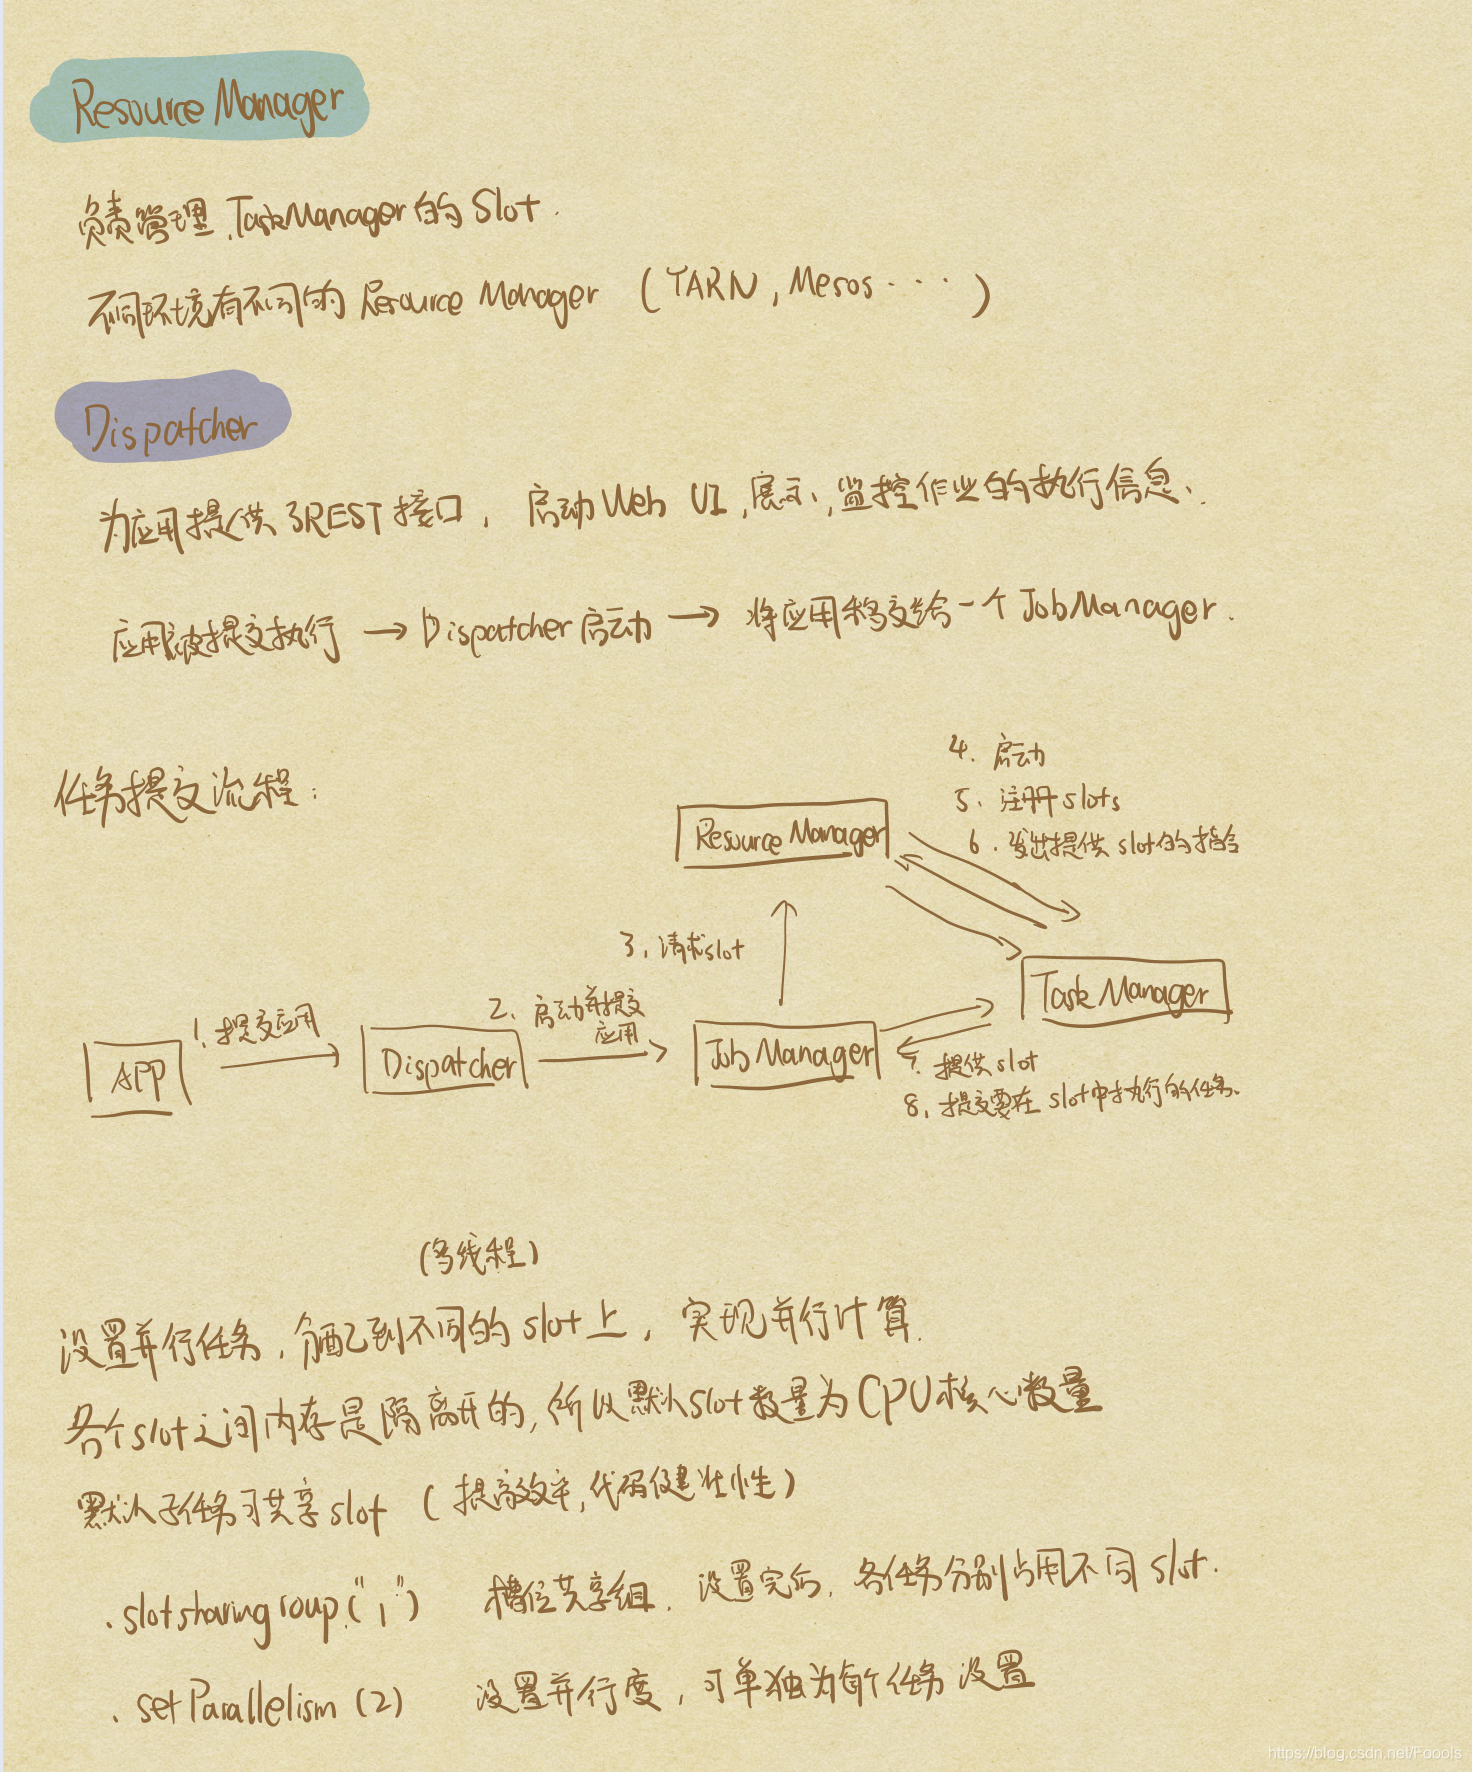 Resource Manager
负责管理 TaskManager的 Slot.
不同环境有不同的 Resource Manager (YARN, Mesos····)
Dispatcher
为应用提供了REST接口, 启动Web UI,展示、监控作业的执行信息、.
应用被提交执行 → Dispatcher启动 → 将应用移交给一个JobManager.
任务提交流程:
4. 启动
5. 注册slots
6. 发出提供 slot的指令
Resource Manager
3. 请求slot
Task Manager
1. 提交应用
2. 启动并提交
应用
APP
Dispatcher
Job Manager
7. 提供slot
8. 提交要在 slot中执行的任务.
(多线程)
设置并行任务,分配到不同的slot上, 实现并行计算.
各个slot之间内存是隔离开的,所以默认slot数量为CPU核心数量
默认子任务可共享slot (提高效率,代码健壮性)
.slotsharinggroup("1") 槽位共享组. 设置完后, 各任务分别占用不同 slot.
. setParallelism (2) 设置并行度, 可单独为每个任务设置
https://blog.csdn.net/Foools